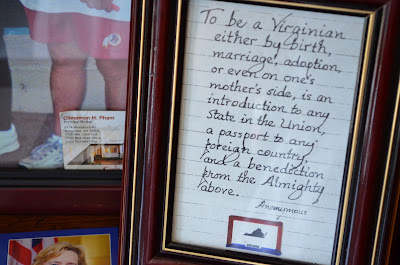 To be a Virginian
either by birth,
marriage, adoption,
or even on one's
mother's side, is an
introduction to any
State in the Union,
a passport to any
foreign country,
and a benediction
from the Almighty
above.
Anonymous
Cinnamon H. Pham